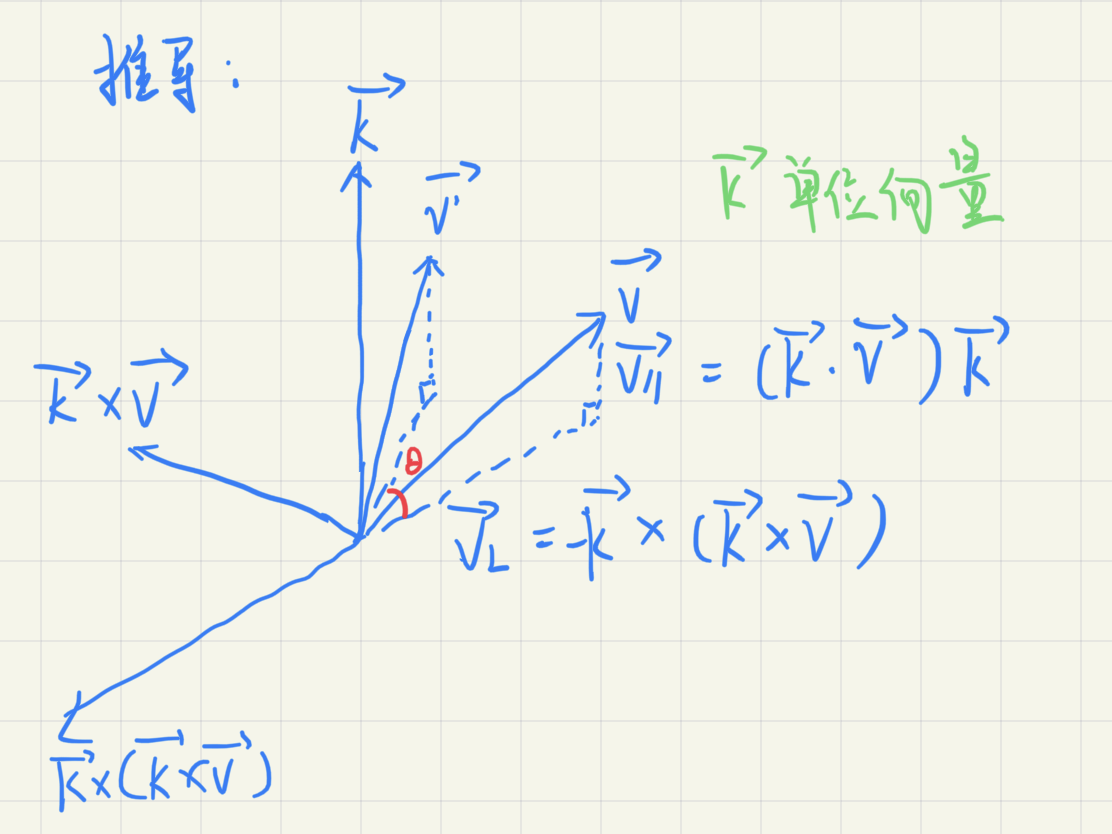 推导：
k⃗
v⃗'
k⃗ 单位向量
v⃗
k⃗ × v⃗
v⃗∥ = (k⃗ · v⃗) k⃗
θ
v⃗⊥ = -k⃗ × (k⃗ × v⃗)
k⃗ × (k⃗ × v⃗)